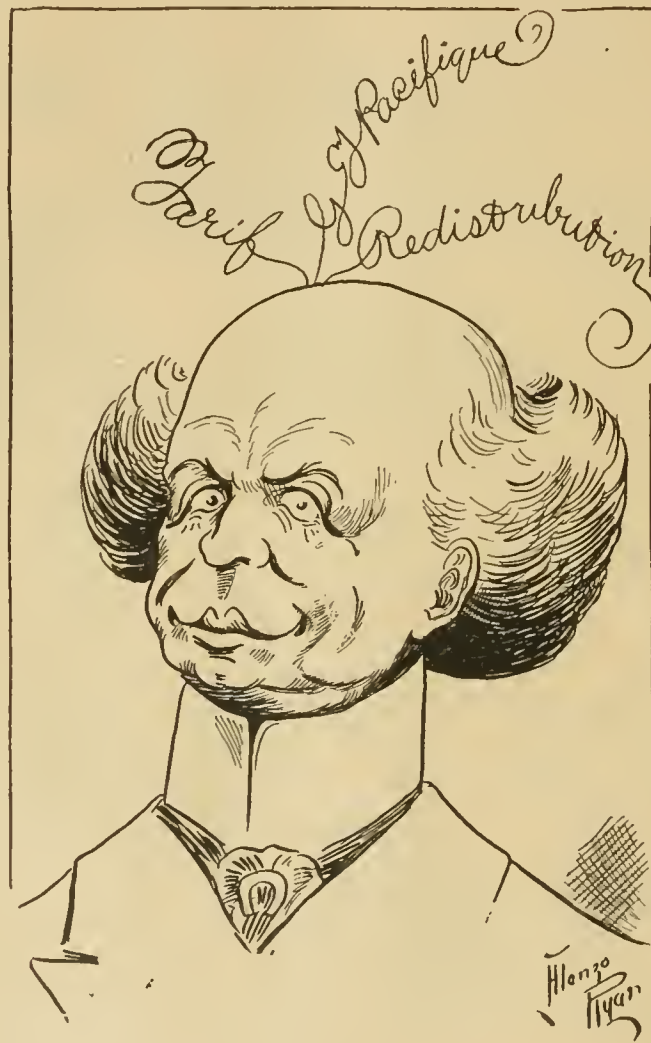 Tarif
Gd Pacifique
Redistribution
Alonzo
Ryan